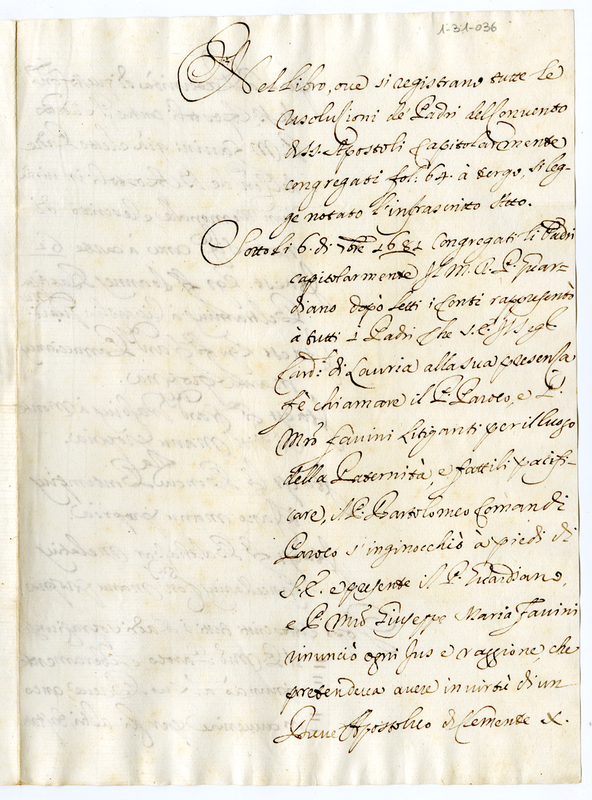 1-31-036
Nel Libro, ove si registrano tutte le
risolutioni de Padri del Convento
di SS. Apostoli Capitolarmente
congregati fol. 64. à tergo, si leg-
ge notato l'infrascritto
Sotto li 6. di 1681 Congregati li Padri
capitolarmente Il M. R. P. Guar-
diano dopò letti i Conti rappresentò
à tutti i Padri che
Card. di Lauria alla sua presenza
fè chiamare il P. Paroco, e P.
Mro Favini Litiganti per il luogo
della Paternità, e fattili pacifi-
care, il P. Bartolomeo Comandi
Paroco s'inginocchiò à piedi di
S. E. e presente il P. Guardiano,
e P. Mro Giuseppe Maria Favini
rinunciò ogni Jus e raggione, che
pretendeva avere in virtù di un
Breve Apostolico di Clemente X.